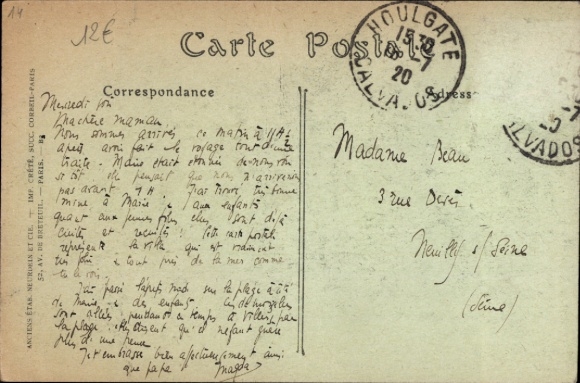 14
12€
Carte Postale
Correspondance
Adresse
HOULGATE
15 30
-7
20
CALVADOS
LVADOS
ANCIENS ÉTAB. NEURDEIN ET CIE. — IMP. CRÉTÉ, SUCC. CORBEIL-PARIS
52, AV. DE BRETEUIL. — PARIS.
Mercredi soir
Ma chère maman
Nous sommes arrivés ce matin à 11 H
après avoir fait le voyage tout d'une
traite. Marie était étonnée de nous voir
si tôt elle pensait que nous n'arriverions
pas avant H J'ai trouvé très bonne
mine à Marie aux enfants
quant aux jeunes filles elles sont déjà
cuites et Cette carte postale
représente la villa qui est vraiment
très et tout près de la mer comme
tu le vois.
J'ai passé l'après midi sur la plage à côté
de Marie et des enfants, ces demoiselles
sont allées pendant ce temps à Villers par
la plage
plus d'une heure
Je t'embrasse bien affectueusement ainsi
que papa Magda
Madame Beau
3 rue
Neuilly s/ Seine
(Seine)